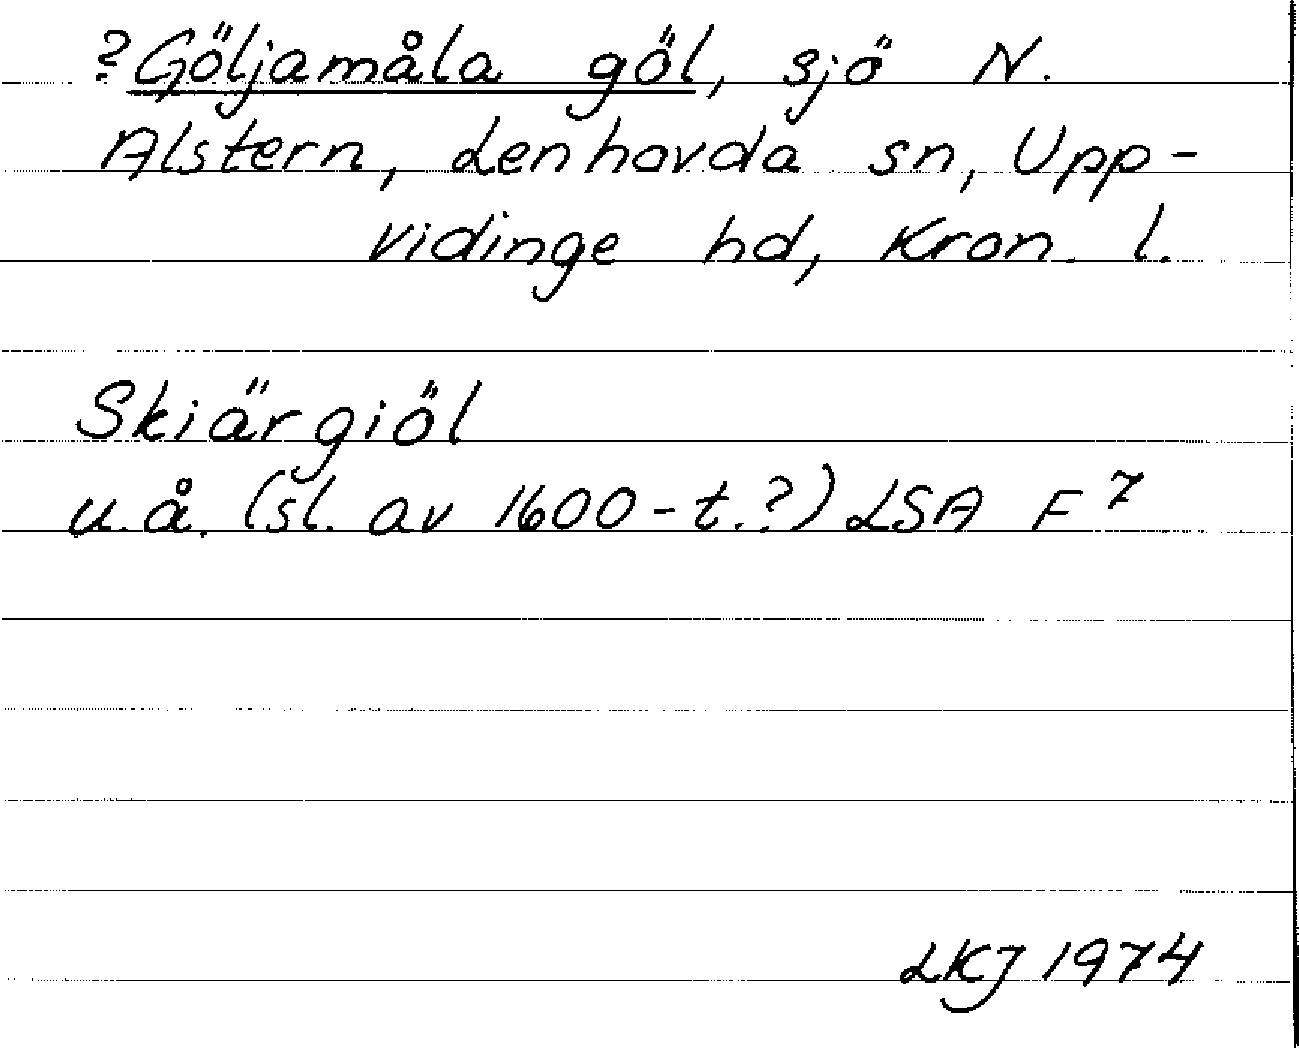 ?Göljamåla göl, sjö N.
Alstern, Lenhovda sn, Upp-
vidinge hd, Kron. l.
Skiärgiöl
u.å. (sl. av 1600-t.?) LSA F 7
LKJ 1974